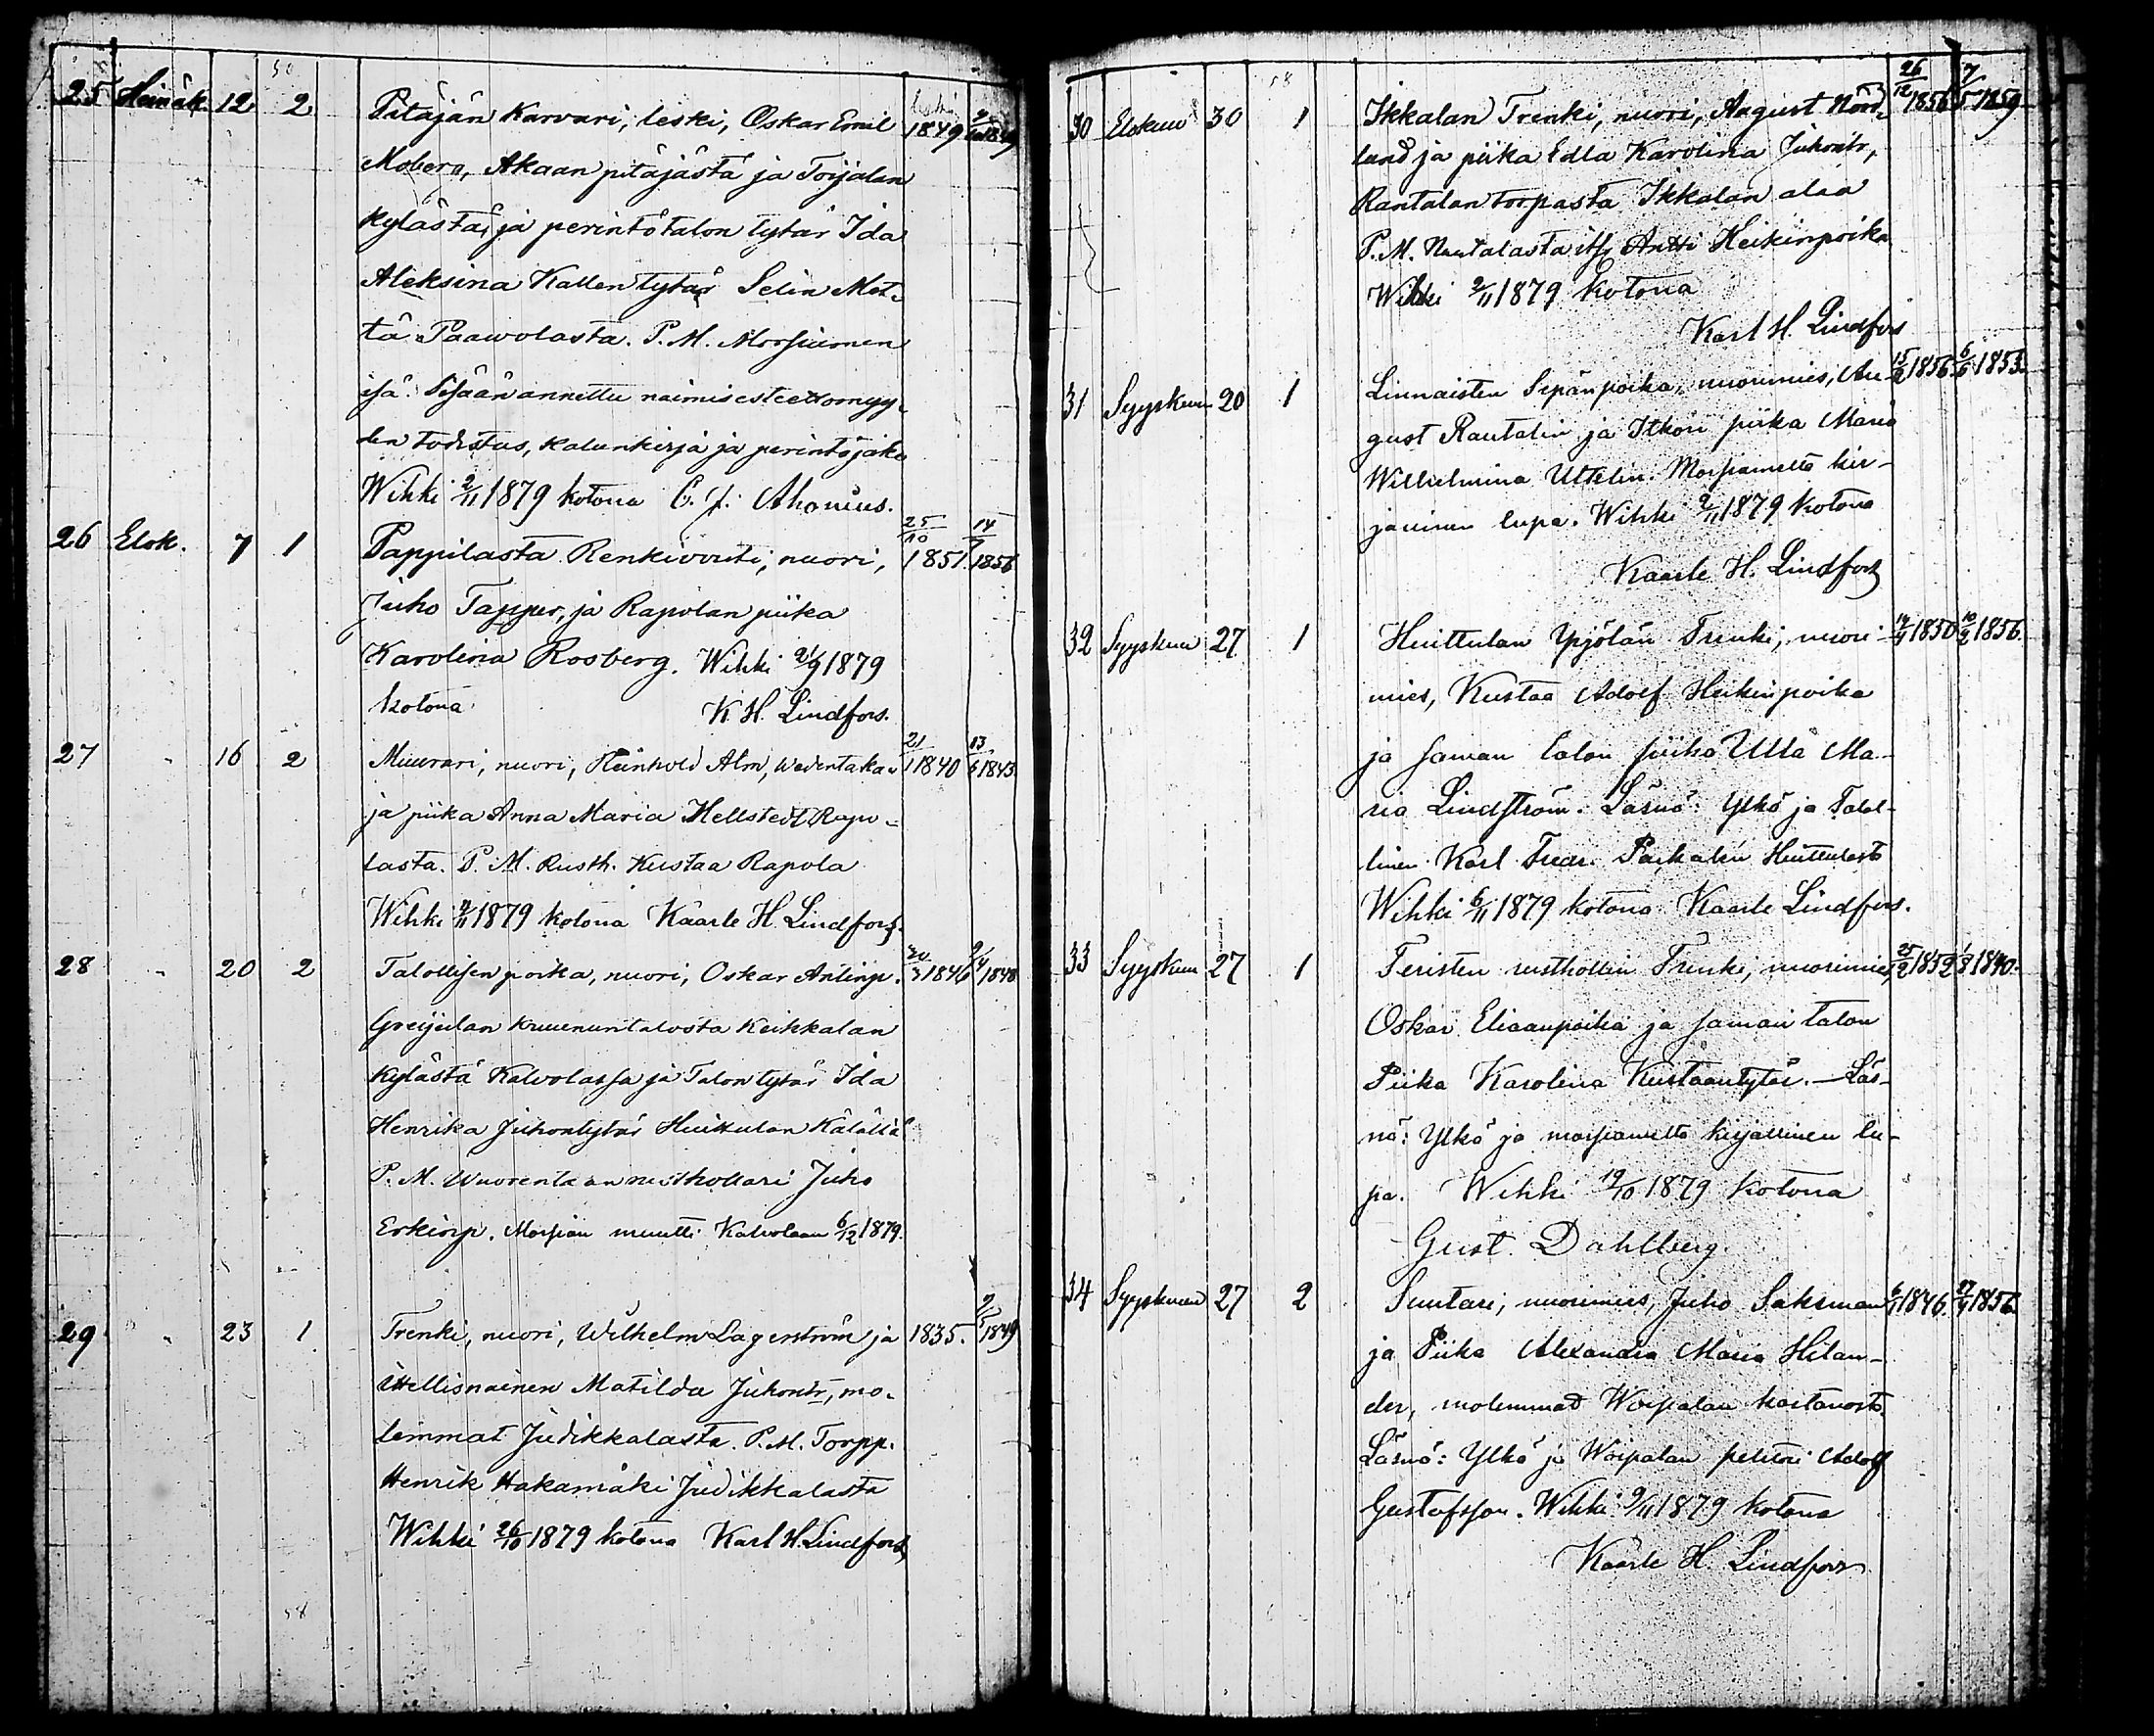 25 Heinäk. 12 2 Pitäjän Karvari, leski, Oskar Emil 1849 1849
Moberg, Akaan pitäjästä ja Toijalan
kylästä, ja perintötalon tytär Ida
Aleksina Kallentytär Selin Met-
tä Paawolasta. P. M. Morsiamen
isä. Sisään annettu naimisesteettömyy-
den todistus, kalunkirja ja perintöjako
Wihki 2/11 1879 kotona C. J. Ahonius.
26 Elok. 7 1 Pappilasta Renkivouti, nuori, 25/10 1851. 14/9 1856
Juho Tapper, ja Rapolan piika
Karolina Rosberg. Wihki 21/9 1879
kotona K. H. Lindfors.
27 " 16 2 Muurari, nuori, Reinhold Alm, Wedentaka 21/1 1840 13/6 1843.
ja piika Anna Maria Hellstedt Rapo-
lasta. P. M. Rusth. Kustaa Rapola
Wihki 2/11 1879 kotona Kaarle H. Lindfors.
28 " 20 2 Talollisen poika, nuori, Oskar Antinp. 20/3 1846 1848
Greijulan kruununtalosta Keikkalan
kylästä Kalvolassa ja Talon tytär Ida
Henrika Juhontytär Huittulan Kälältä
P. M. Wuorentaan rusthollari Juho
Erkinp. Morsian muutti Kalvolaan 6/12 1879.
29 " 23 1 Trenki, nuori, Wilhelm Lagerström ja 1835. 1849
itsellisnainen Matilda Juhontr, mo-
lemmat Judikkalasta. P. M. Torpp.
Henrik Hakamäki Judikkalasta
Wihki 26/10 1879 kotona Karl H. Lindfors
30 Elokuu 30 1 Ikkalan Trenki, nuori, August Nord- 26/12 1856 7/5 1859
lund ja piika Edla Karolina Juhontr,
Rantalan torpasta Ikkalan alaa
P. M. Rantalasta its. Antti Heikinpoika
Wihki 2/11 1879 Kotona
Karl H. Lindfors
31 Syyskuu 20 1 Linnaisten Sepänpoika, nuorimies, Au- 15/2 1856 6/6 1853.
gust Rautalin ja Itkon piika Maria
Wilhelmina Uttelin. Morsiamelta kir-
jallinen lupa. Wihki 2/11 1879 Kotona
Kaarle H. Lindfors
32 Syyskuu 27 1 Huittulan Ypjölän Trenki, nuori- 1850 10/2 1856.
mies, Kustaa Adolf Heikinpoika
ja saman talon piika Ulla Ma-
ria Lindström. Läsnä: Ylkö ja Talol-
linen Karl Fredr. Paikalin Huittulasta
Wihki 6/11 1879 kotona Kaarle Lindfors.
33 Syyskuu 27 1 Teristen rusthollin Trenki, nuorimies, 25/2 1852 1840.
Oskar Eliaanpoika ja saman talon
Piika Karolina Kustaantytär. — Läs-
nä: Ylkö ja morsiamelta kirjallinen lu-
pa. Wihki 19/10 1879 Kotona
Gust. Dahlberg.
34 Syyskuu 27 2 Suutari, nuorimies, Juho Saksman 6/1 1846. 1856.
ja Piika Alexandra Maria Hilan-
der, molemmad Woipalan kartanosta.
Läsnä: Ylkö ja Woipalan pehtori Adolf
Gustafsson. Wihki 9/11 1879 kotona
Kaarle H. Lindfors